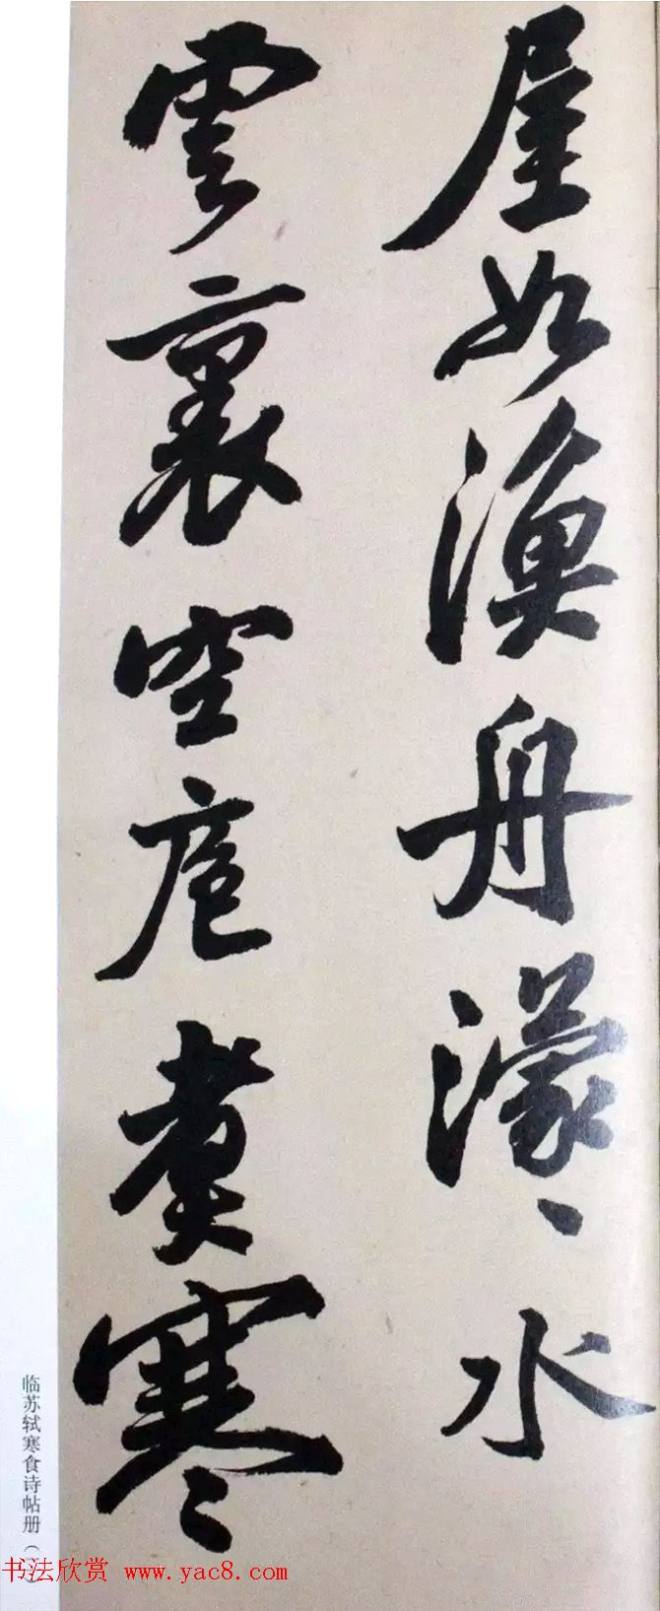 屋如漁舟濛〻水
雲裏空庖煑寒
临苏轼寒食诗帖册
书法欣赏 www.yac8.com